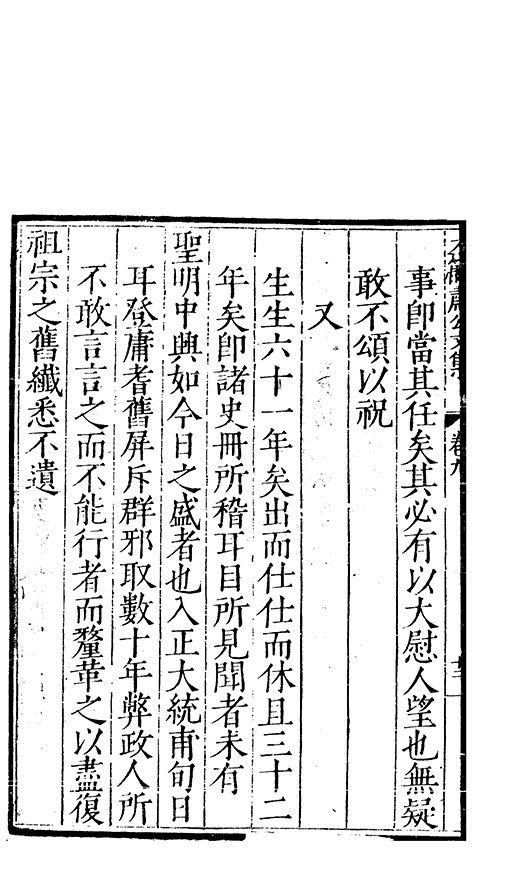 肅公文集 卷九
事即當其任矣其必有以大慰人望也無疑
敢不頌以祝
又
生生六十一年矣出而仕仕而休且三十二
年矣即諸史冊所稽耳目所見聞者未有
聖明中興如今日之盛者也入正大統甫旬日
耳登庸耆舊屏斥群邪取數十年弊政人所
不敢言言之而不能行者而釐革之以盡復
祖宗之舊纖悉不遺